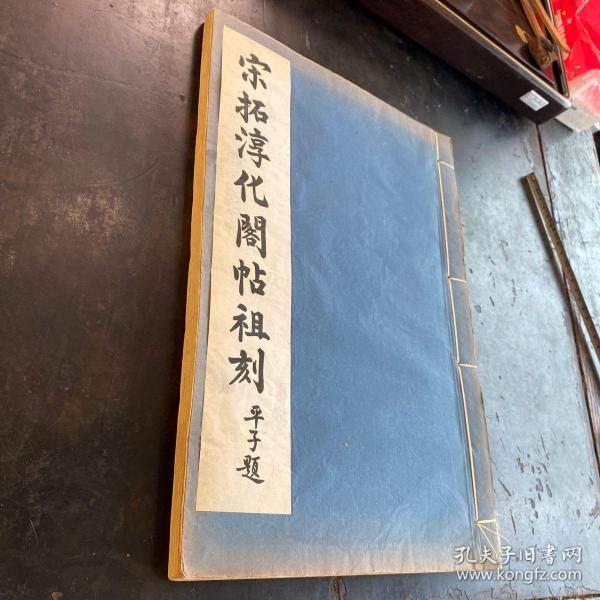 宋拓淳化閣帖祖刻
平子題
孔夫子旧書网
www.kongfz.com